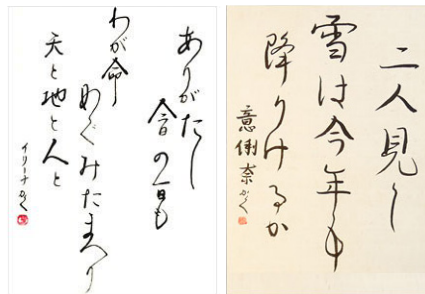 ありがたし
今日の一日も
わが命
めぐみたまへり
天と地と人と
イリーナかく
二人見し
雪は今年も
降りけるか
意俐奈かく